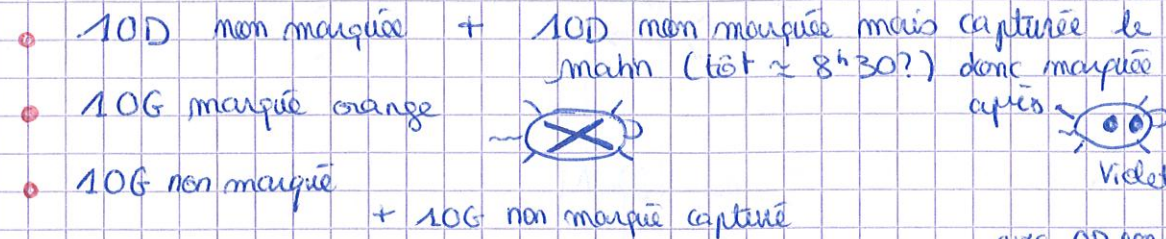 10D non marquée + 10D non marquée mais capturée le
matin (tôt ≃ 8h30?) donc marquée
10G marqué orange après
Violet
10G non marqué
+ 10G non marqué capturé